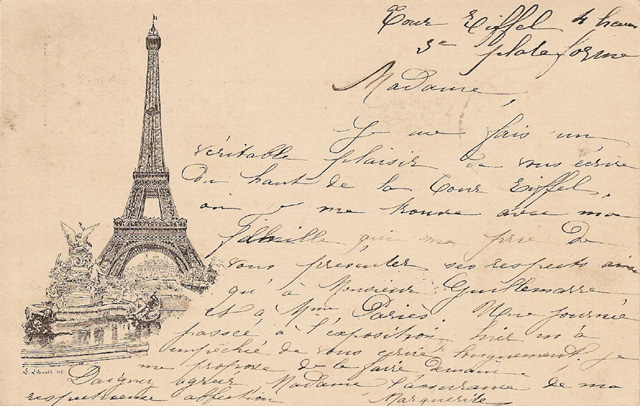 Tour Eiffel 4 heures
3e plateforme
Madame,
Je me fais un
véritable plaisir de vous écrire
du haut de la Tour Eiffel,
où je me trouve avec ma
famille qui me prie de
vous présenter ses respects ainsi
qu'à Monsieur Guillemarre
et à Mme Pariès. Une journée
passée à l'exposition hier m'a
empêché de vous écrire longuement, je
me propose de le faire demain.
Daignez agréer Madame l'assurance de ma
respectueuse affection
Marguerite